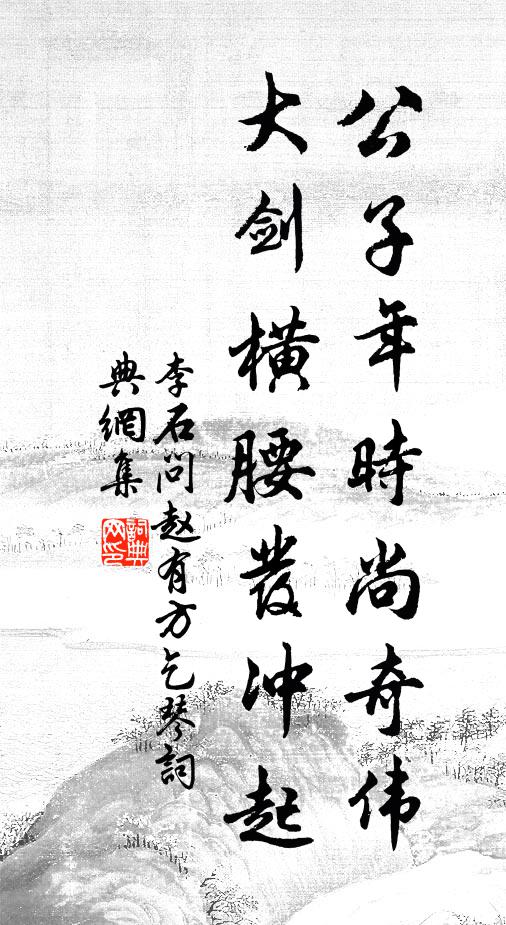 公子年時尚奇伟
大剑橫腰發冲起
李石问赵有方乞琴詞
典網集
詞典网印